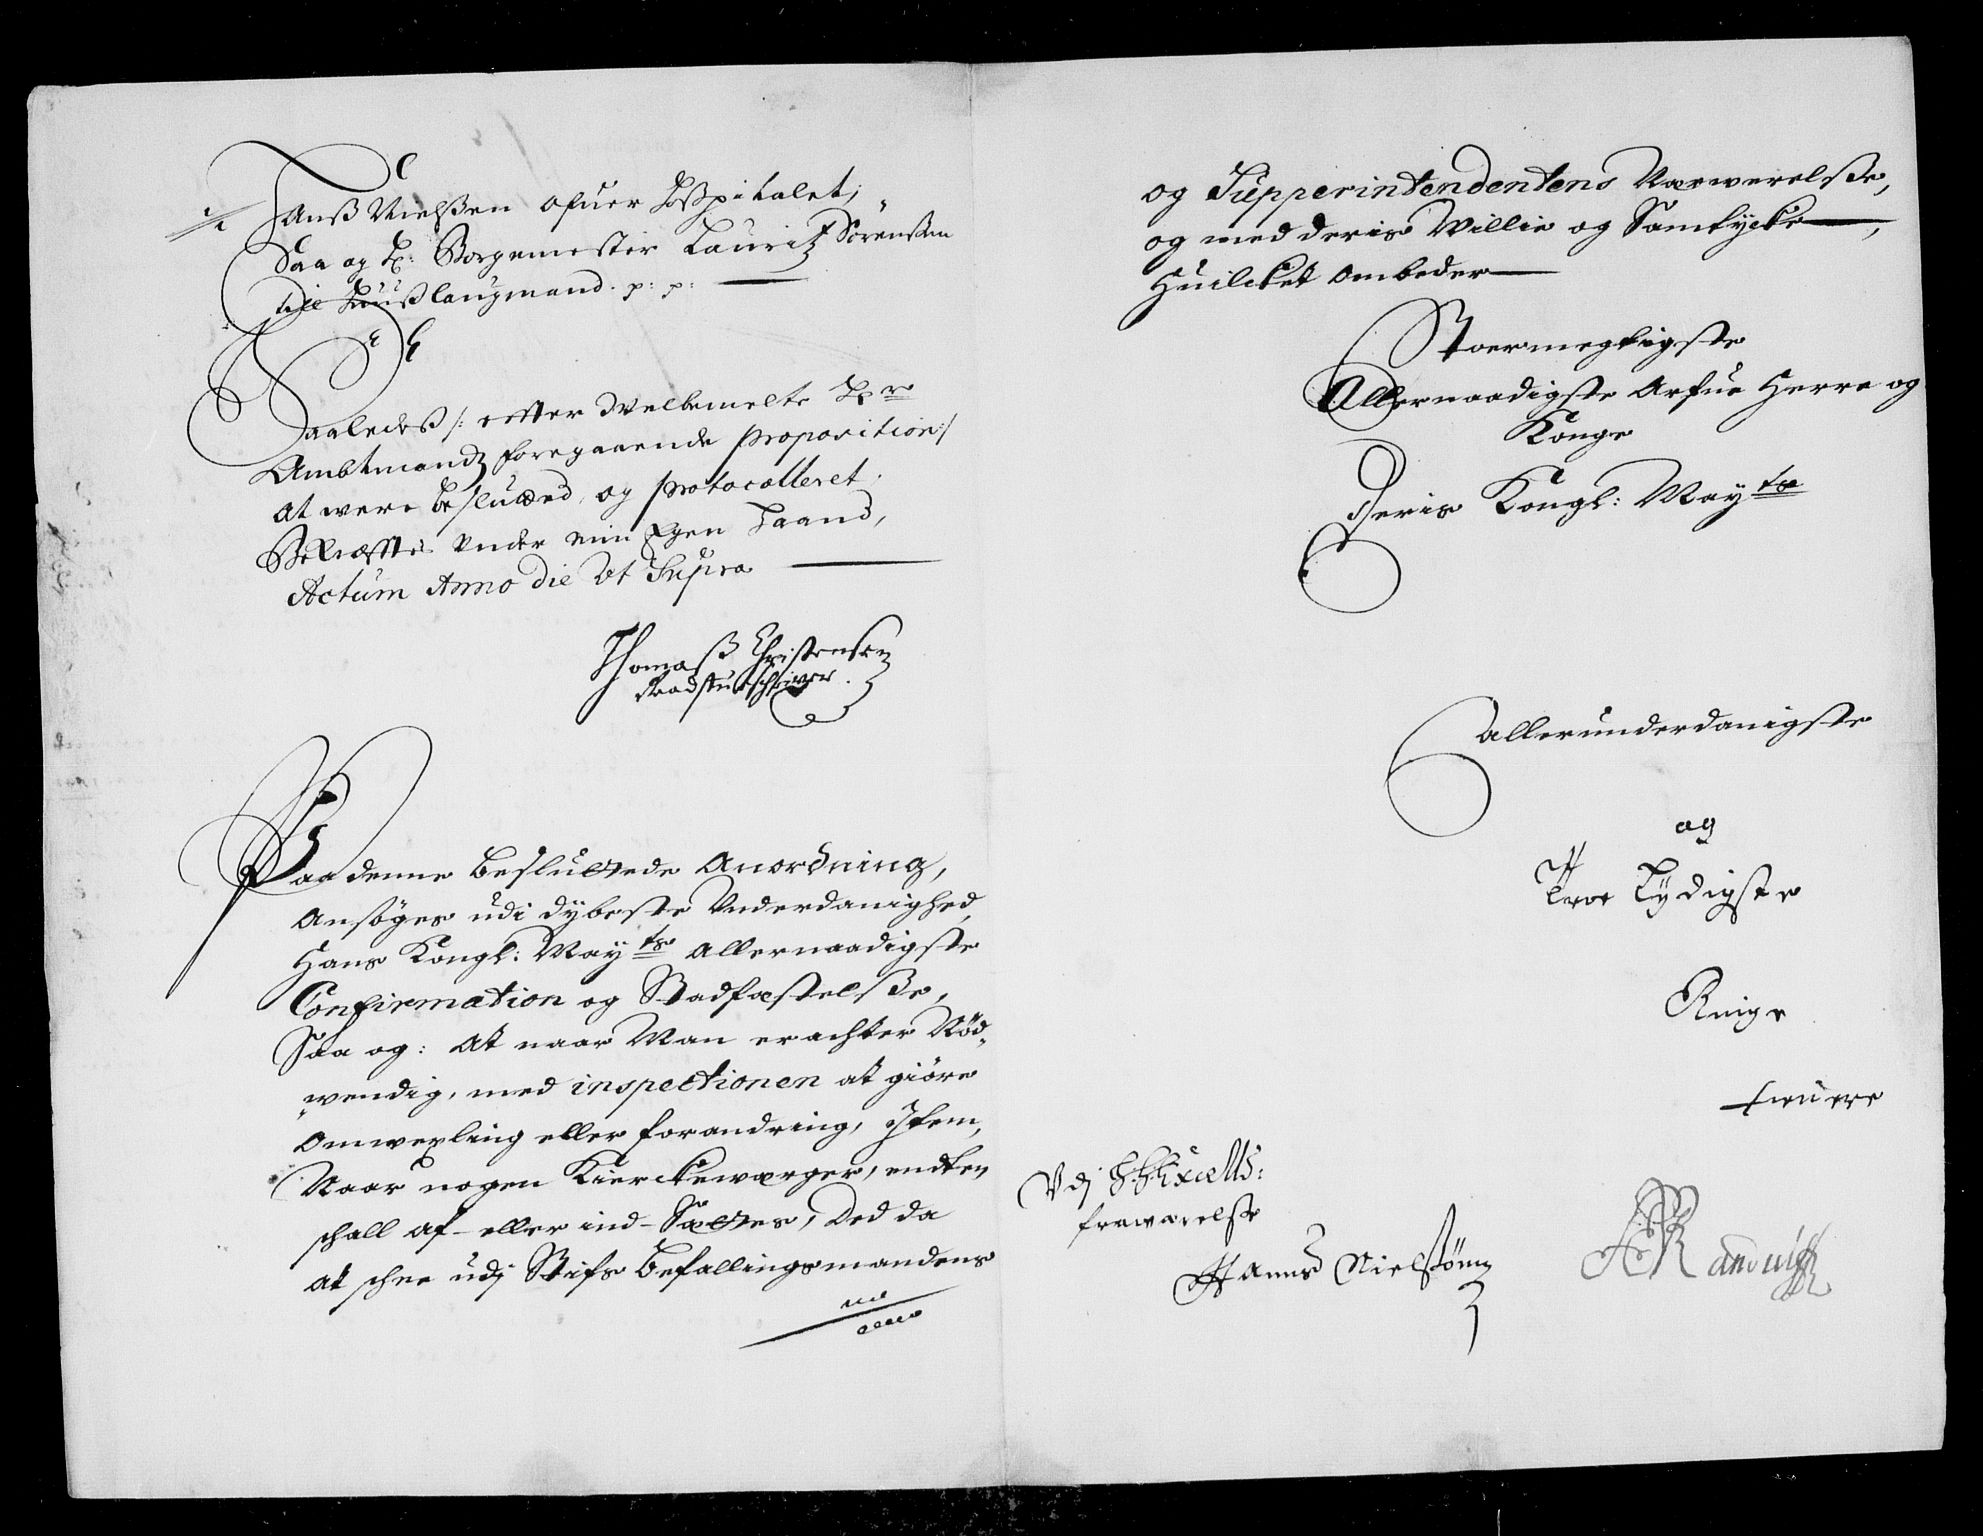 Hanß Nielßen ofuer Hoßpitalet;
Saa og Hr: Borgemester Lauritz Sörenßen
till Huußlaugmand. p: p:
Saaledeß /: effter Welbemelte Hr
Ambtmandz foregaaende proposition :/
at were beslutted, og protocolleret,
Bekræffter under min Egen Haand,
Actum Anno die Ut Supra
Thomaß Christensen
Raadstueschriver.
Paa denne besluttede Anordning,
Ansöges udi dybeste Underdanighed
Hans Kongl: Mayts allernaadigste
Confirmation og Stadfæstelße,
Saa og: At naar Man erachter Nöd-
wendig, med inspectionen at giöre
Omwexling eller forandring, Item,
Naar nogen Kierckewærger, endten
schall af- eller ind-Sættes, Ded da
at schee udj Stifs Befallingsmandens
og Supperintendentens Nærwerelße,
og med deris Willie og Samtycke,
Huilcket ombeder
Stoermegtigste
Allernaadigste Arfue Herre og
Konge
Deris Kongl: Mayts
allerunderdanigste
og
Troe Lydigste
Ringe
tienere
Udj H. Excells:
frawærelse
Hanns Nielsönn